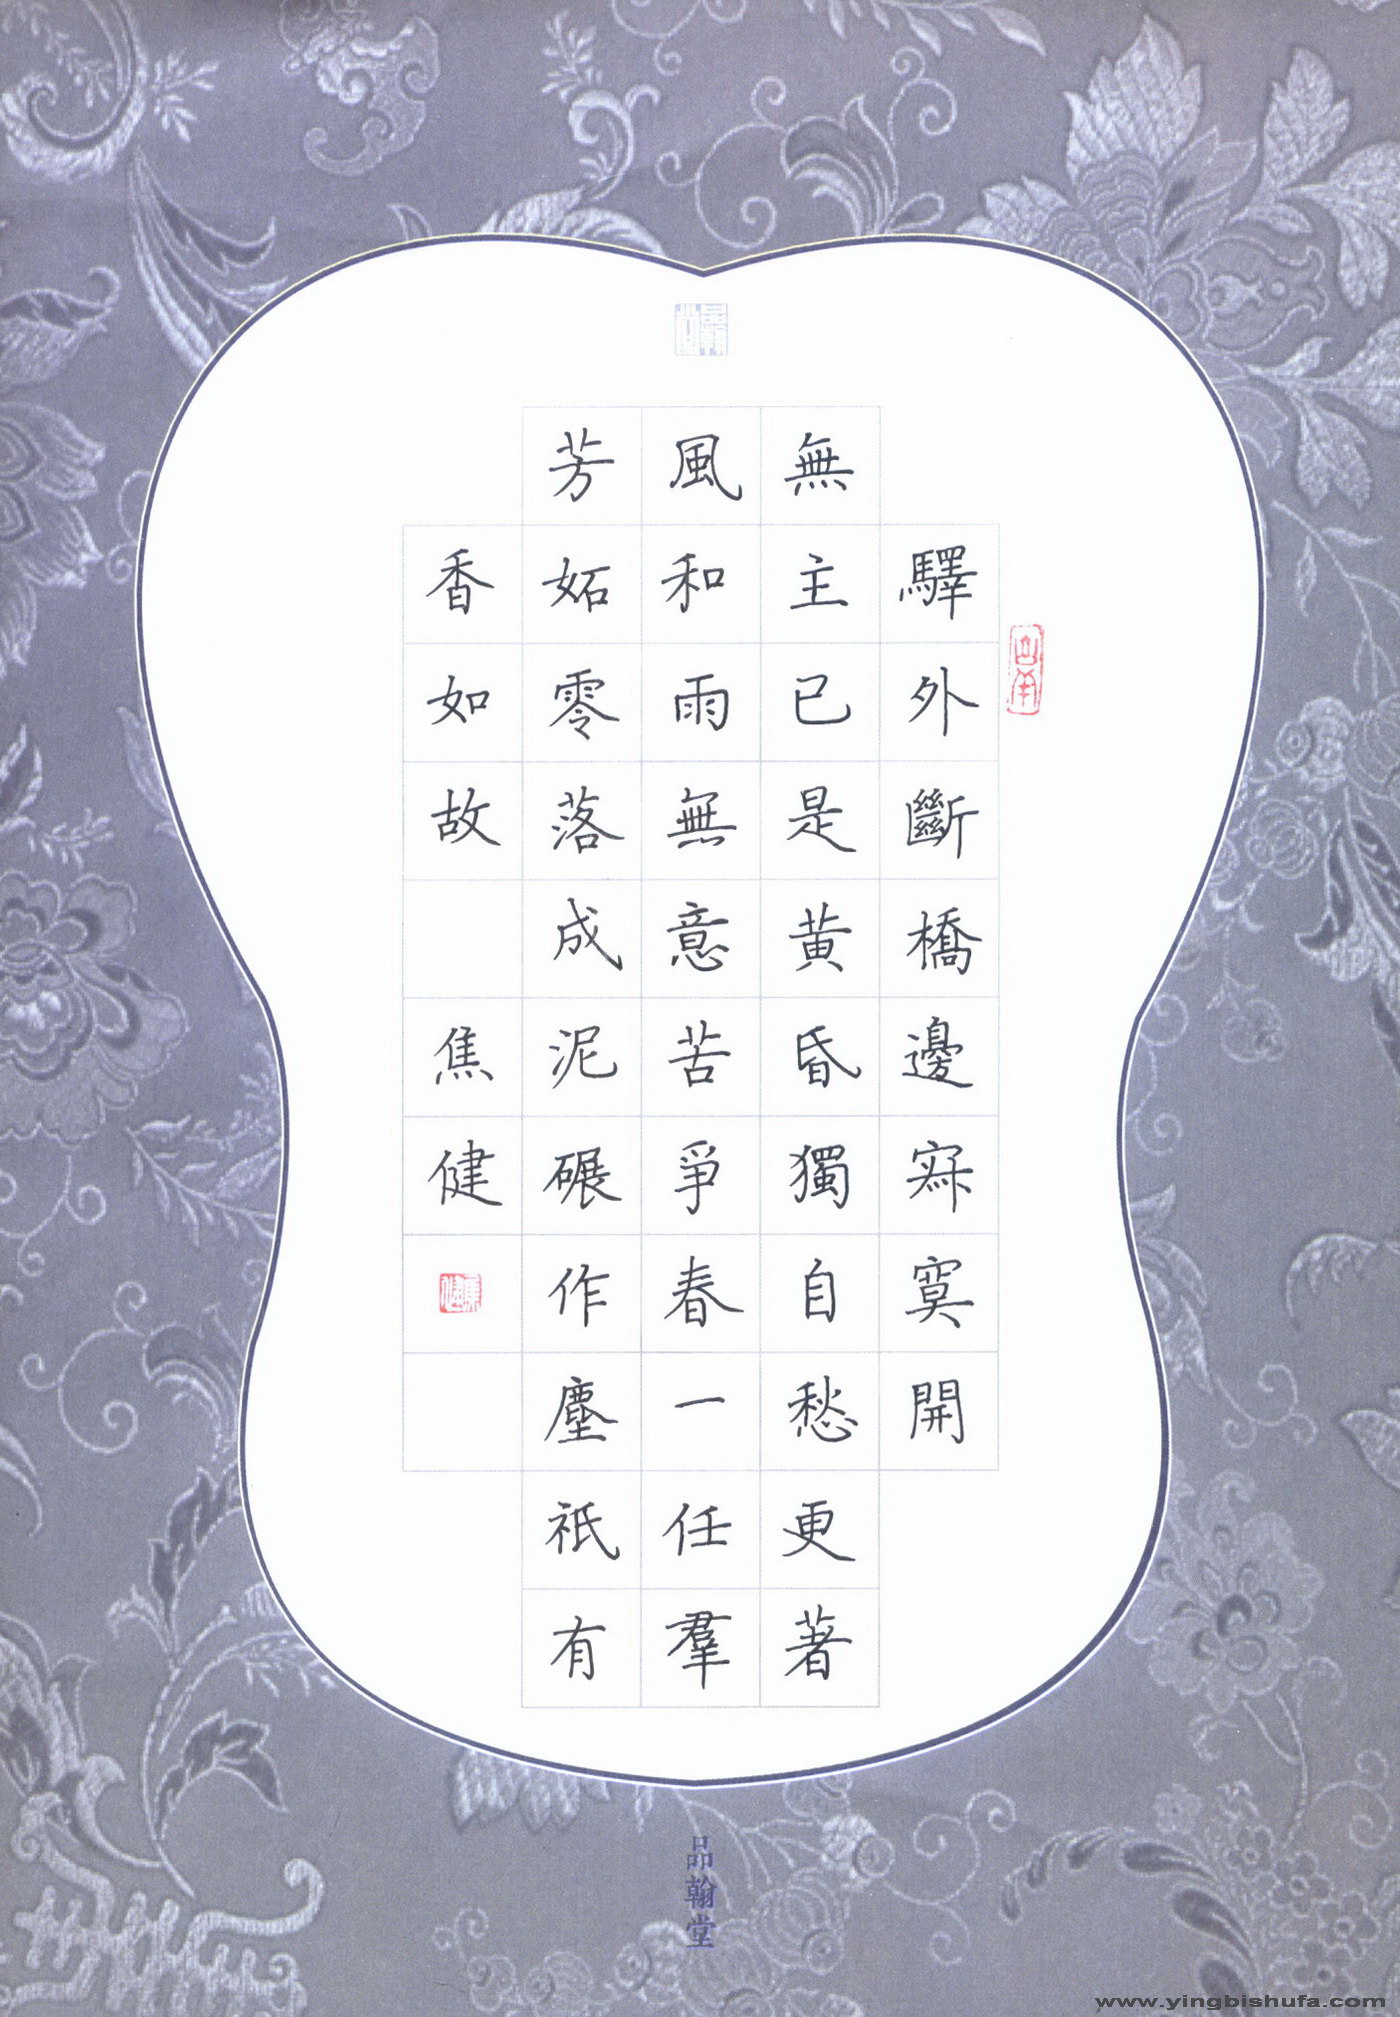 驛外斷橋邊寂寞開
無主已是黃昏獨自愁更著
風和雨無意苦爭春一任羣
芳妬零落成泥碾作塵祇有
香如故 焦健
品翰堂
www.yingbishufa.com